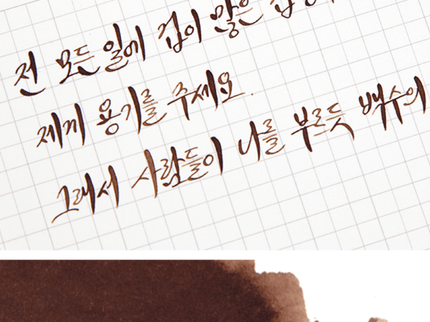 전 모든 일에 겁이 많은
제게 용기를 주세요.
그래서 사람들이 나를 부르듯 백수의